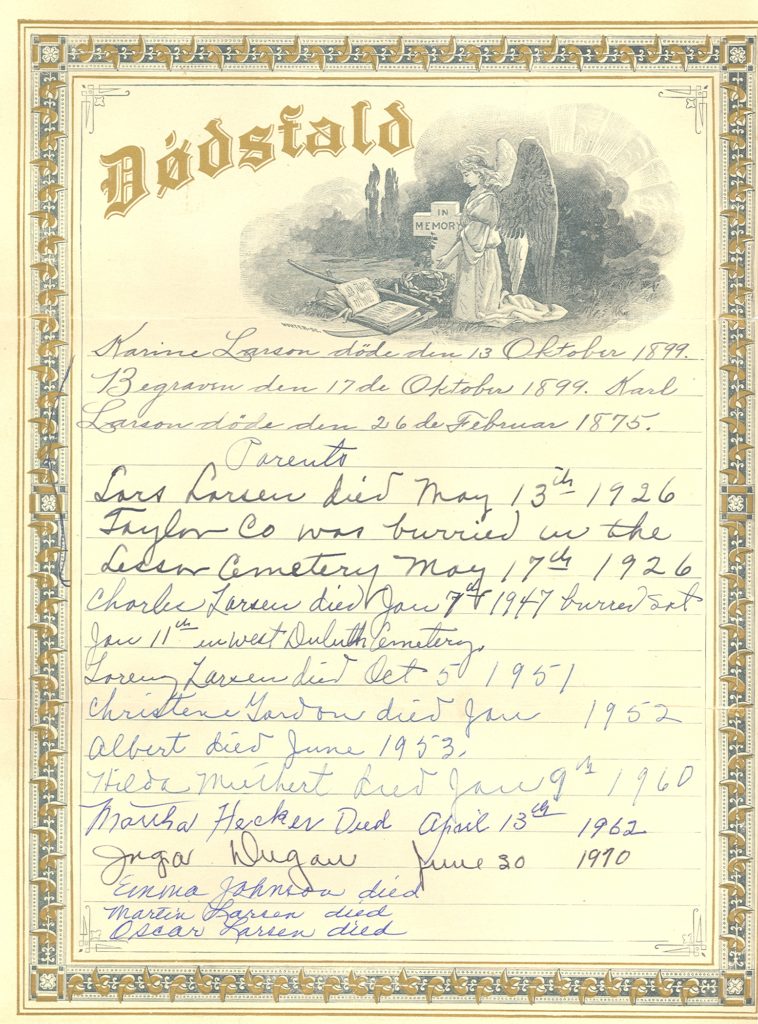 Dødsfald
IN
MEMORY
Karine Larson döde den 13 Oktober 1899.
Begraven den 17 de Oktober 1899. Karl
Larson döde den 26 de Februar 1875.
Parents
Lars Larsen died May 13th 1926
Taylor Co was burried in the
Lessor Cemetery May 17th 1926
Charles Larsen died Jan 7th 1947 burred Sat
Jan 11th in West Duluth Cemetery.
Lorenz Larsen died Oct 5 1951
Christene Gordon died Jan 1952
Albert died June 1953.
Hilda died Jan 9th 1960
Martha Hecker Died April 13th 1962
Inga Dugan June 30 1970
Emma Johnson died
Martin Larsen died
Oscar Larsen died